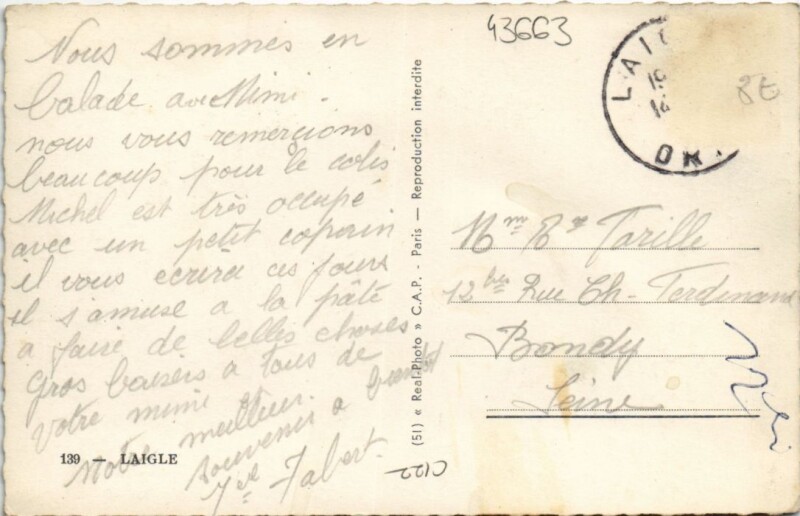 43663
Nous sommes en
balade avec Mimi.
nous vous remerçions
beaucoup pour le colis
Michel est très occupé
avec un petit copain
il vous ecrira ces jours
il s'amuse a la pâte
a faire de belles choses
Gros baisers a tous de
votre mimi et
Notre meilleur
souvenir a bientot
Jabert.
139 — LAIGLE
(51) « Real-Photo » C.A.P. - Paris — Reproduction interdite
C122
LAI
19
OR
8E
Tarille
12 bis Rue Ch- Ferdinand
Bondy
Seine